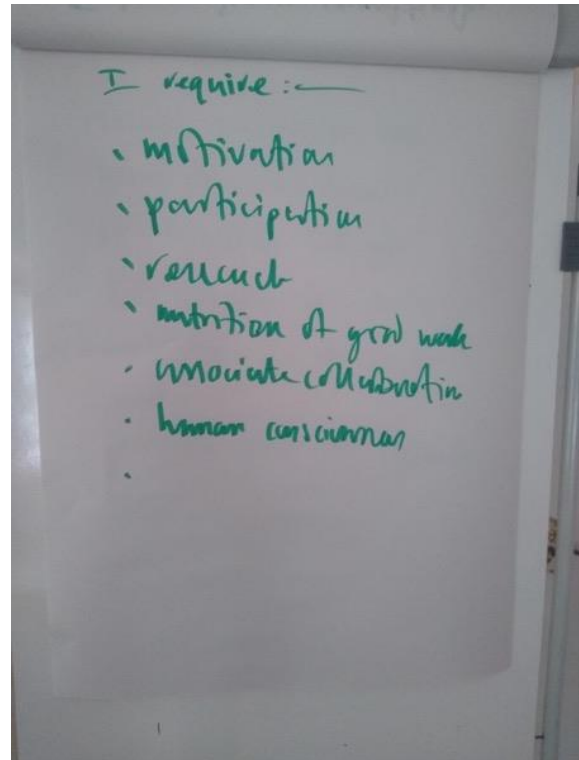 I require :—
• motivation
• participation
• research
• nutrition of good work
• associate collaboration
• human consciousness
•